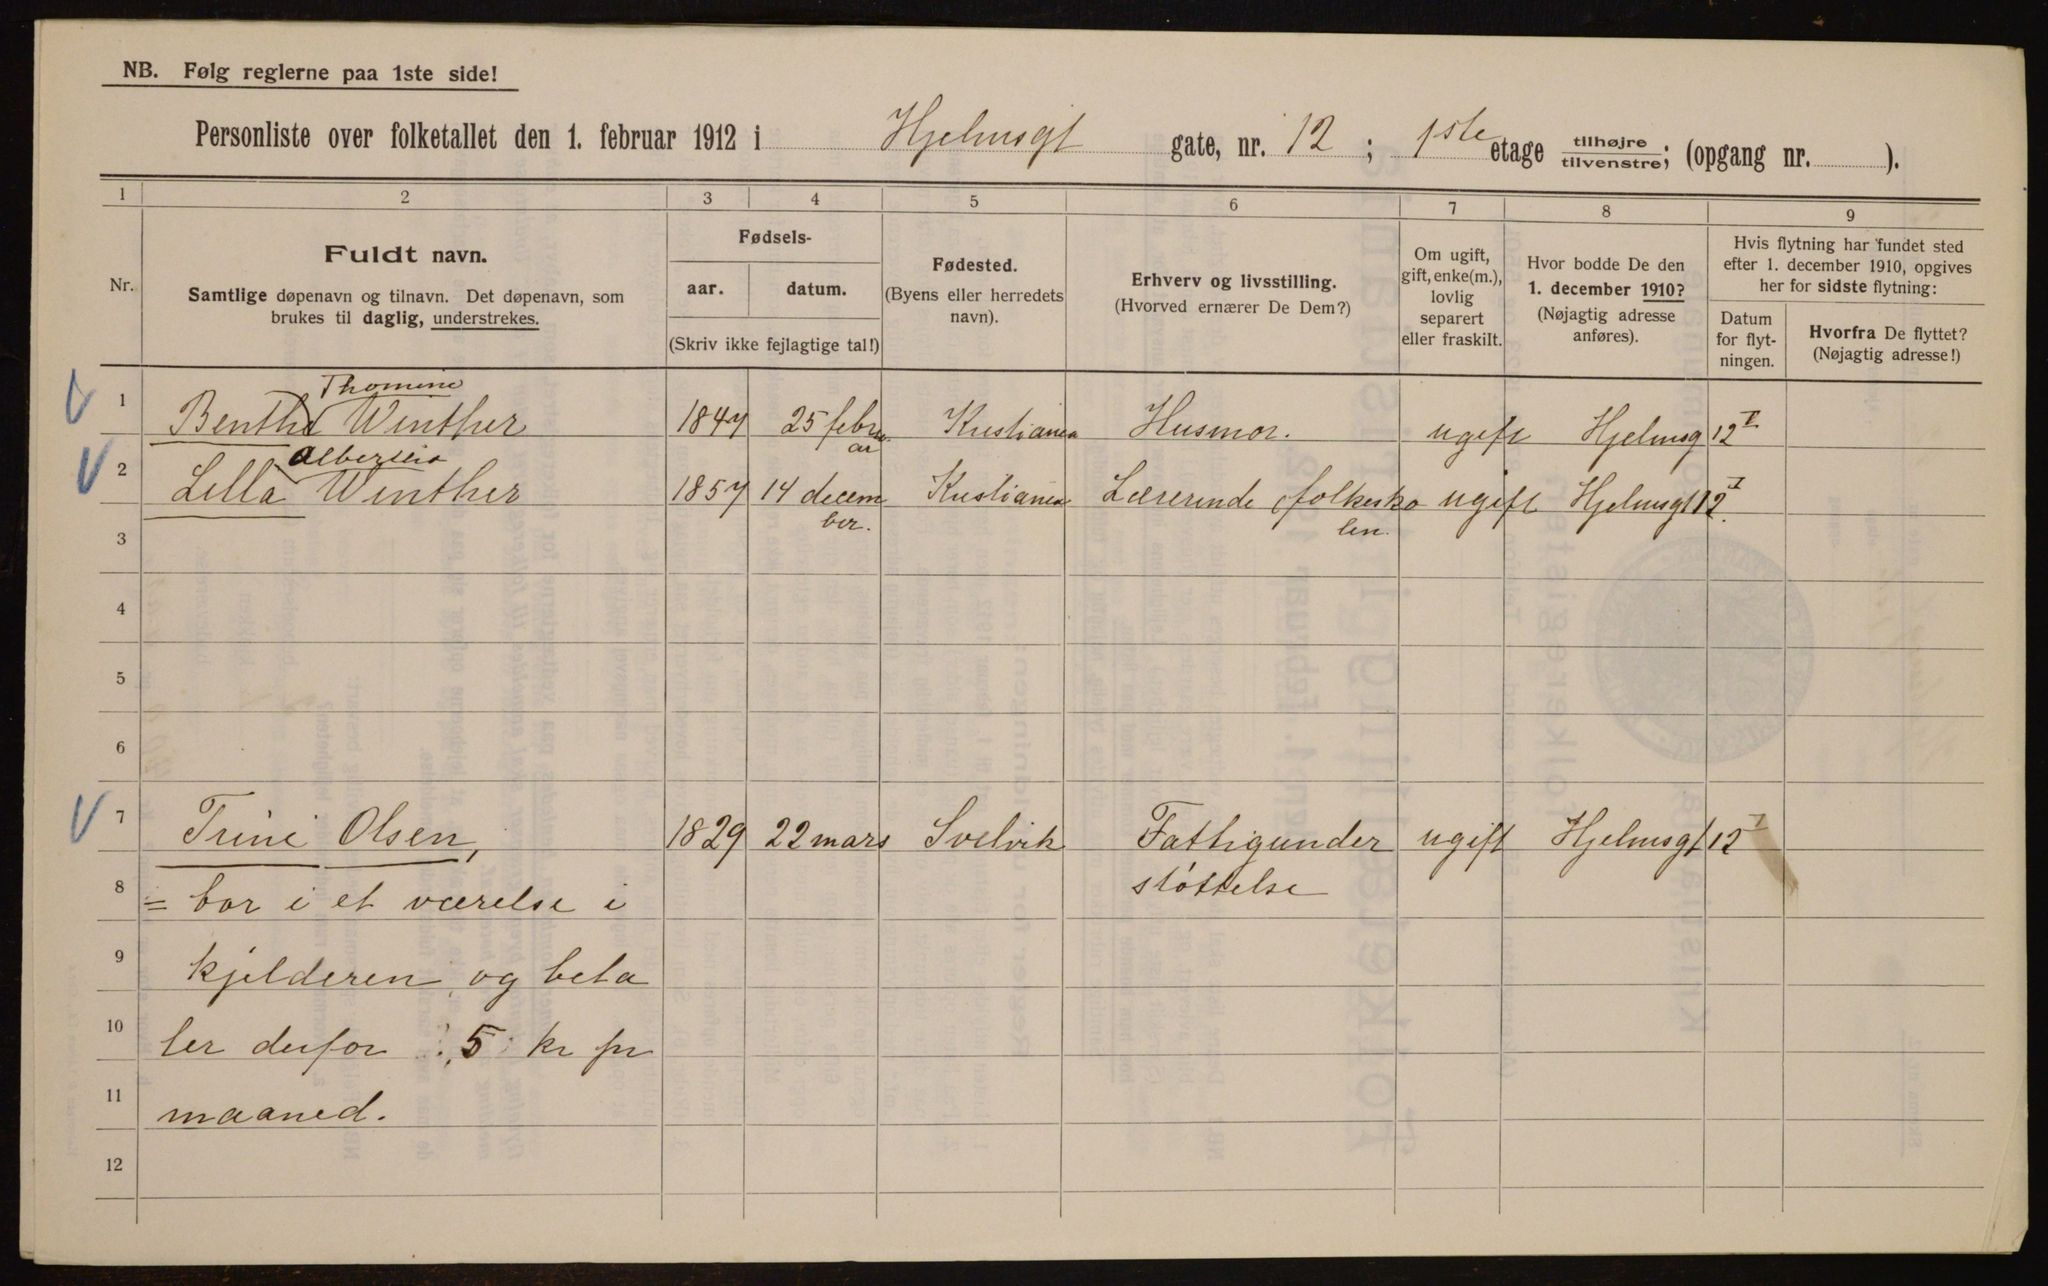 NB. Følg reglerne paa 1ste side!
Personliste over folketallet den 1. februar 1912 i Hjelmsgt gate, nr. 12 ; 1ste etage tilhøjre/tilvenstre; (opgang nr. ).
1 2 3 4 5 6 7 8 9
Nr.
Fuldt navn.
Samtlige døpenavn og tilnavn. Det døpenavn, som
brukes til daglig, understrekes.
Fødsels-
aar. datum.
(Skriv ikke fejlagtige tal!)
Fødested.
(Byens eller herredets
navn).
Erhverv og livsstilling.
(Hvorved ernærer De Dem?)
Om ugift,
gift, enke(m.),
lovlig
separert
eller fraskilt.
Hvor bodde De den
1. december 1910?
(Nøjagtig adresse
anføres).
Hvis flytning har fundet sted
efter 1. december 1910, opgives
her for sidste flytning:
Datum
for flyt-
ningen.
Hvorfra De flyttet?
(Nøjagtig adresse!)
Thomine
1 Benthe Winther 1847 25 febru Kristiania Husmor. ugift Hjelmsg 12 I
ar
2 Lilla Winther 1857 14 decem Kristiania Lærerinde folkesko ugift Hjelmsgt 12 I
ber. len.
3
4
5
6
7 Trine Olsen, 1829 22 mars Svelvik Fattigunder ugift Hjelmsgt 12
støttelse
8 = bor i et værelse i
9 kjelderen og beta
10 ler derfor 5 kr pr
11 maaned.
12